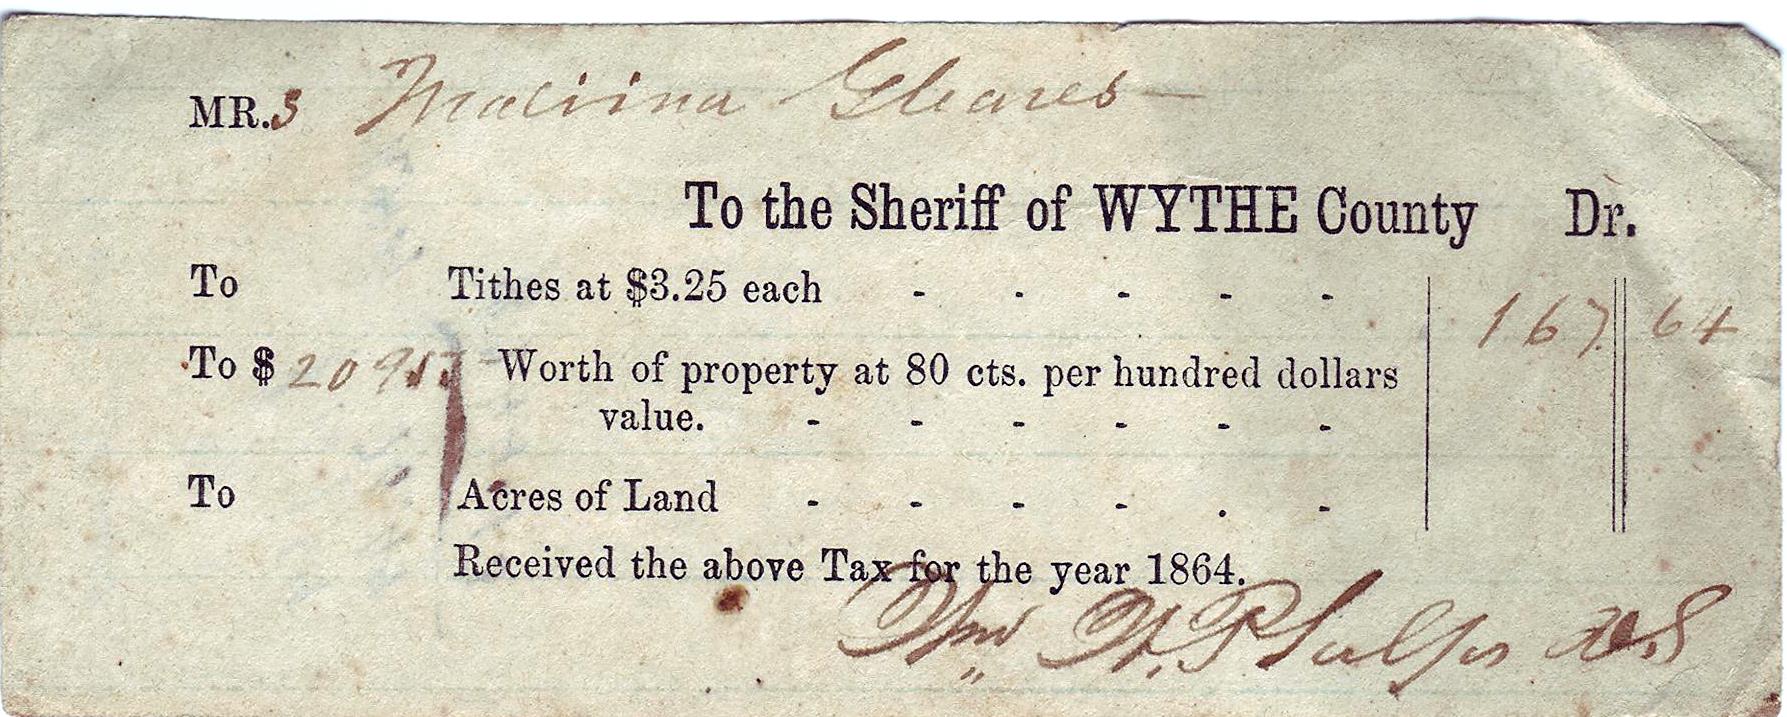 MR.s Malvina Gleaves —
To the Sheriff of WYTHE County Dr.
To Tithes at $3.25 each - - - - -
To $ Worth of property at 80 cts. per hundred dollars 167.64
value. - - - - - -
To Acres of Land - - - - . -
Received the above Tax for the year 1864.
Wm. H. Phelps D.S